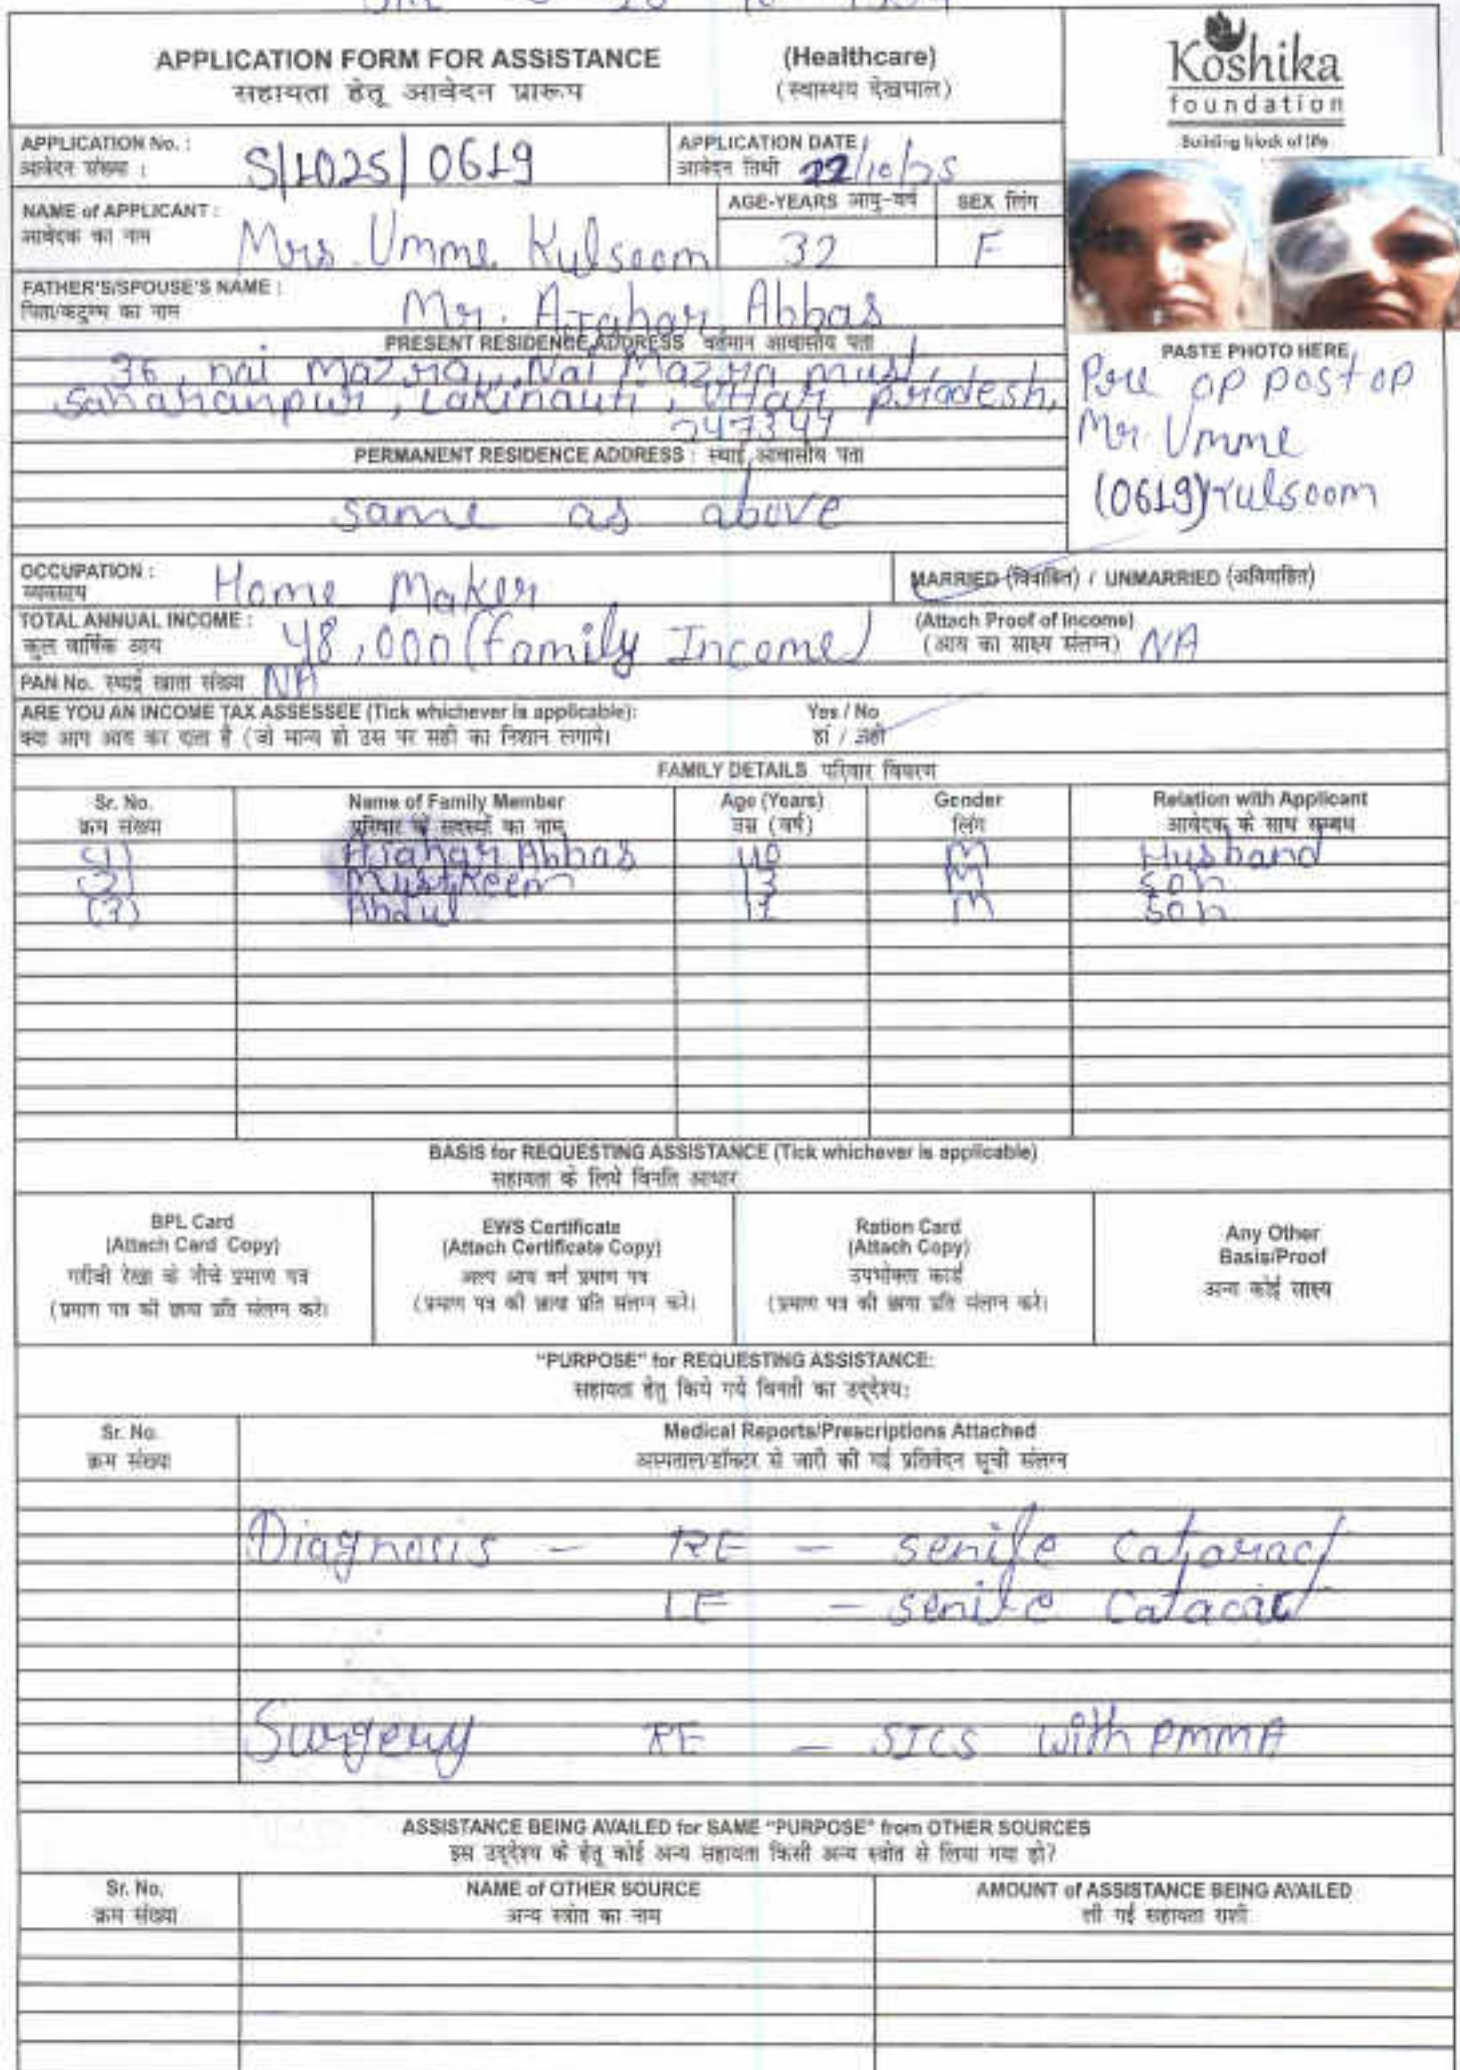 APPLICATION FORM FOR ASSISTANCE
सहायता हेतू आवेदन प्रारूप
(Healthcare)
(स्वास्थय देखभाल)
Koshika
foundation
Building block of life
APPLICATION No. :
आवेदन संख्या :
S/1025/0619
APPLICATION DATE
आवेदन तिथी
22/10/25
NAME of APPLICANT :
आवेदक का नाम
Mrs. Umme Kulsoom
AGE-YEARS आयु-वर्ष
32
SEX लिंग
F
FATHER'S/SPOUSE'S NAME :
पिता/कटुम्ब का नाम
Mr. Azahar Abbas
PRESENT RESIDENCE ADDRESS वर्तमान आवासीय पता
36, nai mazra, Nai Mazra must,
Saharanpur, Lakhnauti, Uttar pradesh,
247344
PERMANENT RESIDENCE ADDRESS : स्थाई आवासीय पता
same as above
PASTE PHOTO HERE
Pre op post op
Mr. Umme
(0619) Kulsoom
OCCUPATION :
व्यवसाय
Home Maker
MARRIED (विवाहित) / UNMARRIED (अविवाहित)
TOTAL ANNUAL INCOME :
कुल वार्षिक आय
48,000 (Family Income)
(Attach Proof of Income)
(आय का साक्ष्य संलग्न) NA
PAN No. स्थाई खाता संख्या NA
ARE YOU AN INCOME TAX ASSESSEE (Tick whichever is applicable):
क्या आप आय कर दाता है (जो मान्य हो उस पर सही का निशान लगाये।
Yes / No
हां / नही
FAMILY DETAILS परिवार विवरण
Sr. No. Name of Family Member Age (Years) Gender Relation with Applicant
क्रम संख्या परिवार के सदस्यों का नाम उम्र (वर्ष) लिंग आवेदक के साथ सम्बध
(1) Azahar Abbas 40 M Husband
(2) Mustkeem 13 M son
(3) Abdul 12 M son
BASIS for REQUESTING ASSISTANCE (Tick whichever is applicable)
सहायता के लिये विनति आधार
BPL Card
(Attach Card Copy)
गरीबी रेखा के नीचे प्रमाण पत्र
(प्रमाण पत्र की छाया प्रति संलग्न करे।
EWS Certificate
(Attach Certificate Copy)
अल्प आय वर्ग प्रमाण पत्र
(प्रमाण पत्र की छाया प्रति संलग्न करे।
Ration Card
(Attach Copy)
उपभोक्ता कार्ड
(प्रमाण पत्र की छाया प्रति संलग्न करे।
Any Other
Basis/Proof
अन्य कोई साक्ष्य
"PURPOSE" for REQUESTING ASSISTANCE:
सहायता हेतु किये गये विनती का उद्देश्य:
Sr. No. Medical Reports/Prescriptions Attached
क्रम संख्या अस्पताल/डॉक्टर से जारी की गई प्रतिवेदन सूची संलग्न
Diagnosis - RE - senile Cataract
LE - senile Catacact
Surgery RE - SICS with PMMA
ASSISTANCE BEING AVAILED for SAME "PURPOSE" from OTHER SOURCES
इस उद्देश्य के हेतू कोई अन्य सहायता किसी अन्य स्त्रोत से लिया गया हो?
Sr. No. NAME of OTHER SOURCE AMOUNT of ASSISTANCE BEING AVAILED
क्रम संख्या अन्य स्त्रोत का नाम ली गई सहायता राशी